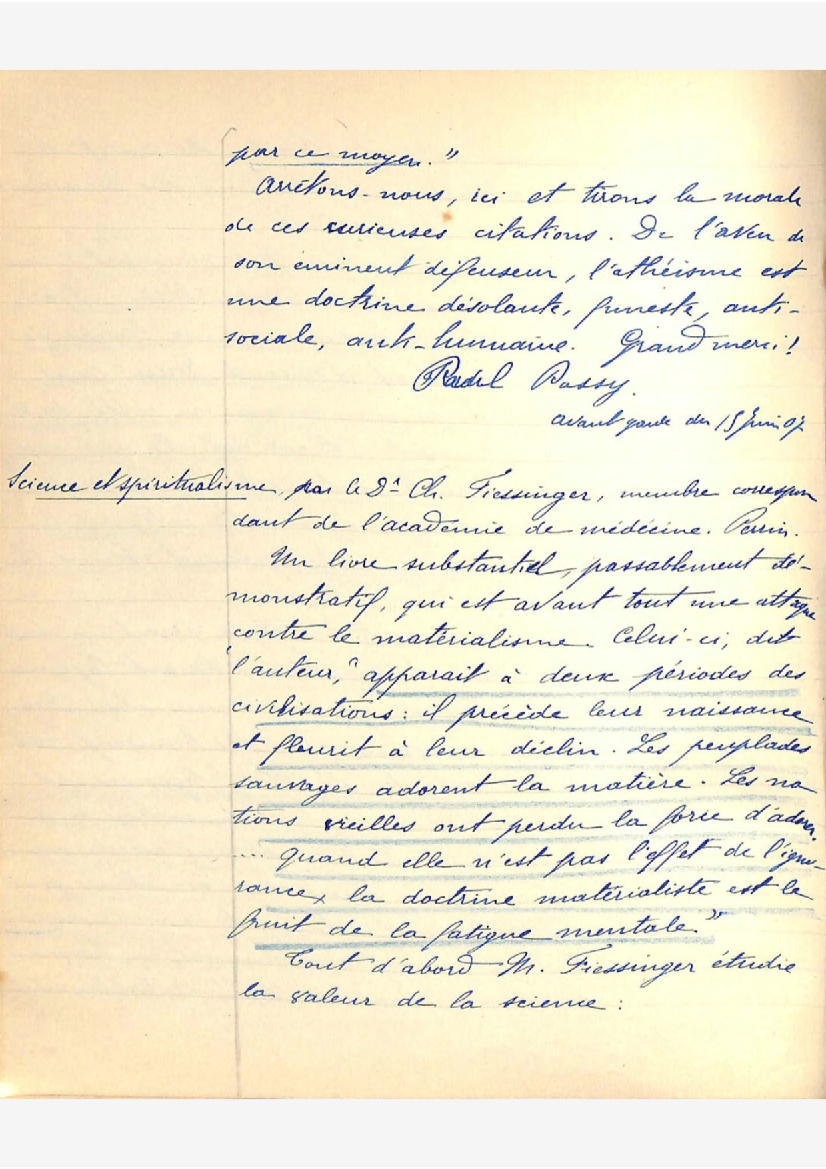 par ce moyen."
Arrêtons-nous, ici et tirons la morale
de ces curieuses citations. De l'aveu de
son éminent défenseur, l'athéisme est
une doctrine désolante, funeste, anti-
sociale, anti-humaine. Grand merci!
Passy.
avant garde du 15 Juin 07
Science et spiritualisme, par le Dr Ch. Fiessinger, membre correspon
dant de l'academie de médécine. Perrin.
Un livre substantiel, passablement dé-
monstratif, qui est avant tout une attaque
contre le matérialisme. Celui-ci, dit
l'auteur, "apparait à deux périodes des
civilisations: il précède leur naissance
et fleurit à leur déclin. Les peuplades
sauvages adorent la matière. Les na
tions vieilles ont perdu la force d'adorer.
.... quand elle n'est pas l'effet de l'igno-
rance, la doctrine matérialiste est le
fruit de la fatigue mentale"
Tout d'abord M. Fiessinger étudie
la valeur de la science: